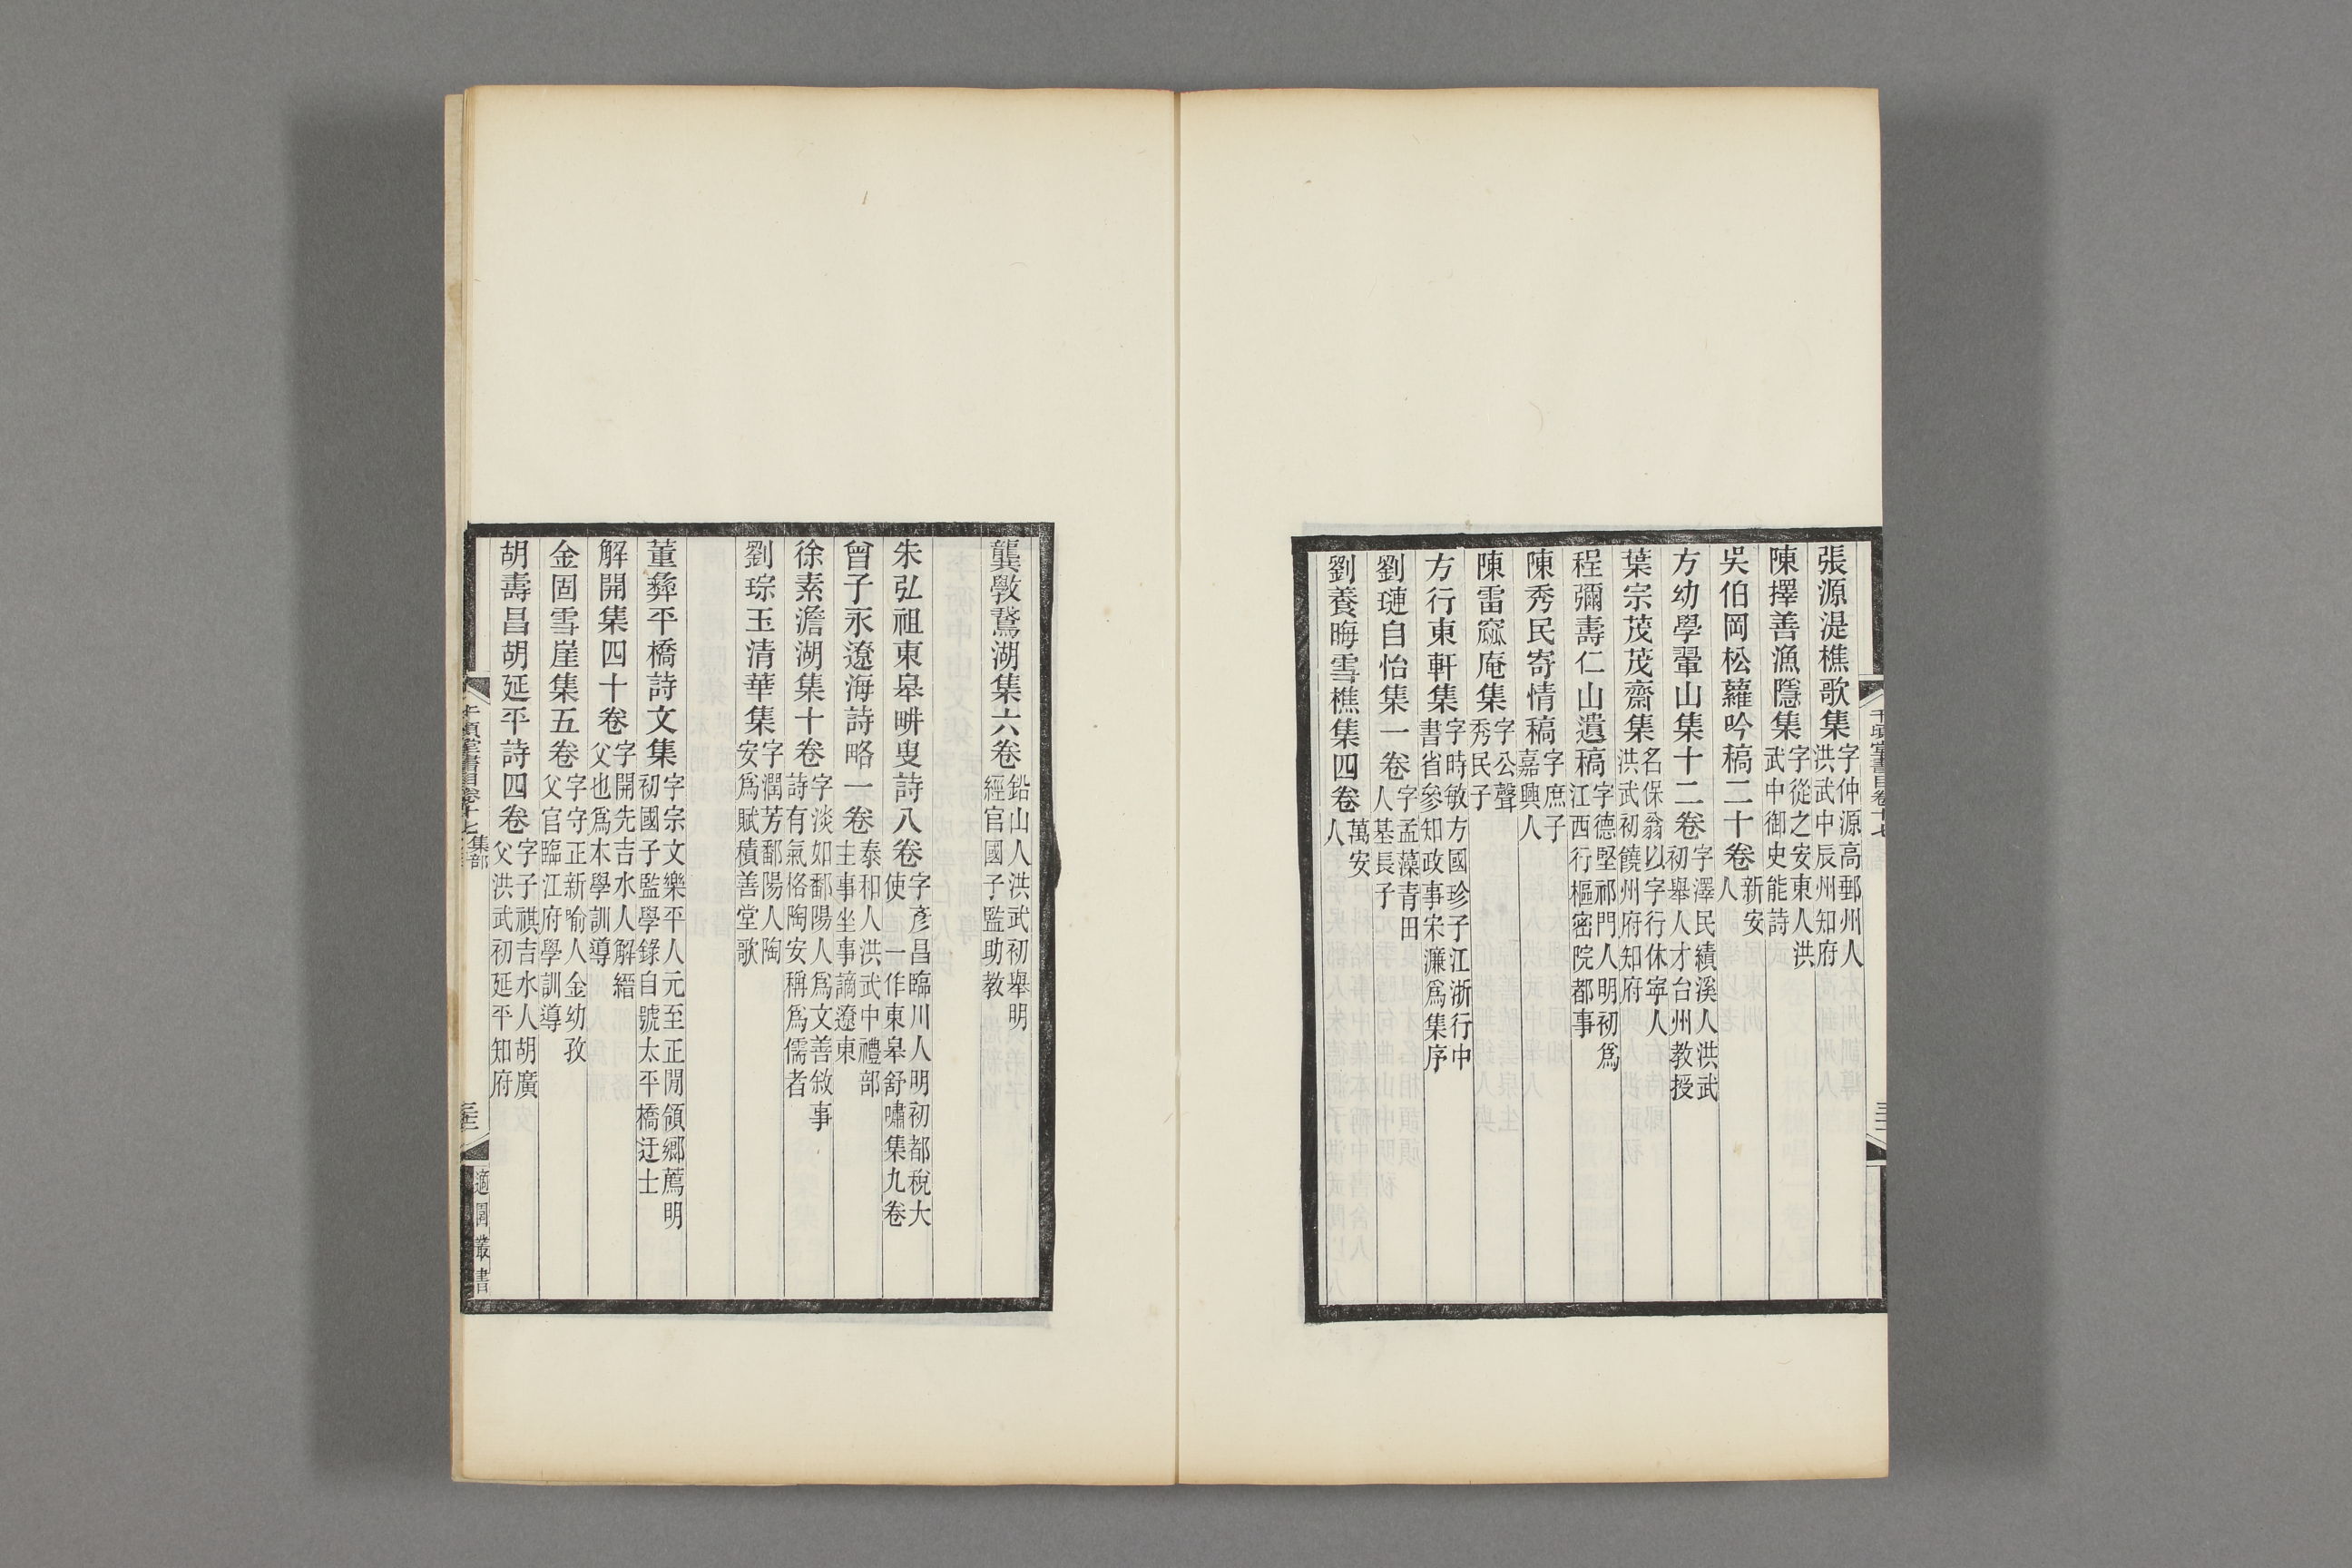 張源湜樵歌集字仲源高郵州人洪武中辰州知府
陳擇善漁隱集字從之安東人洪武中御史能詩
吳伯岡松蘿吟稿二十卷新安人
方幼學翬山集十二卷字澤民績溪人洪武初舉人才台州教授
葉宗茂茂齋集名保翁以字行休寧人洪武初饒州府知府
程彌壽仁山遺稿字德堅祁門人明初爲江西行樞密院都事
陳秀民寄情稿字庶子嘉興人
陳雷窳庵集字公聲秀民子
方行東軒集字時敏方國珍子江浙行中書省參知政事宋濂爲集序
劉璉自怡集一卷字孟藻青田人基長子
劉養晦雪樵集四卷萬安人
龔斆鵞湖集六卷鉛山人洪武初舉明經官國子監助教
朱弘祖東皋畊叟詩八卷字彥昌臨川人明初都稅大使 一作東皋舒嘯集九卷
曾子永遼海詩略一卷泰和人洪武中禮部主事坐事謫遼東
徐素澹湖集十卷字淡如鄱陽人爲文善敘事詩有氣格陶安稱爲儒者
劉琮玉清華集字潤芳鄱陽人陶安爲賦積善堂歌
董彝平橋詩文集字宗文樂平人元至正閒領鄉薦明初國子監學錄自號太平橋迂士
解開集四十卷字開先吉水人解縉父也爲本學訓導
金固雪崖集五卷字守正新喻人金幼孜父官臨江府學訓導
胡壽昌胡延平詩四卷字子祺吉水人胡廣父洪武初延平知府
千頃堂書目卷十七 集部
適園叢書